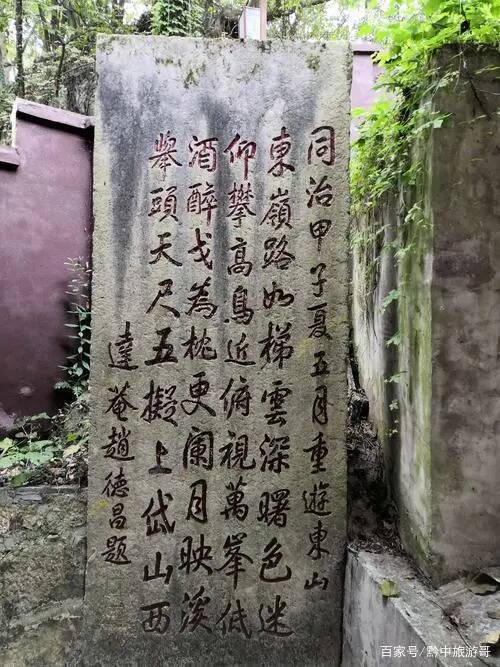 同治甲子夏五月重遊東山
東嶺路如梯雲深曙色迷
仰攀高鳥近俯視萬峯低
酒醉戈為枕更闌月映溪
舉頭天尺五擬上岱山西
達菴趙德昌題
百家号/黔中旅游哥